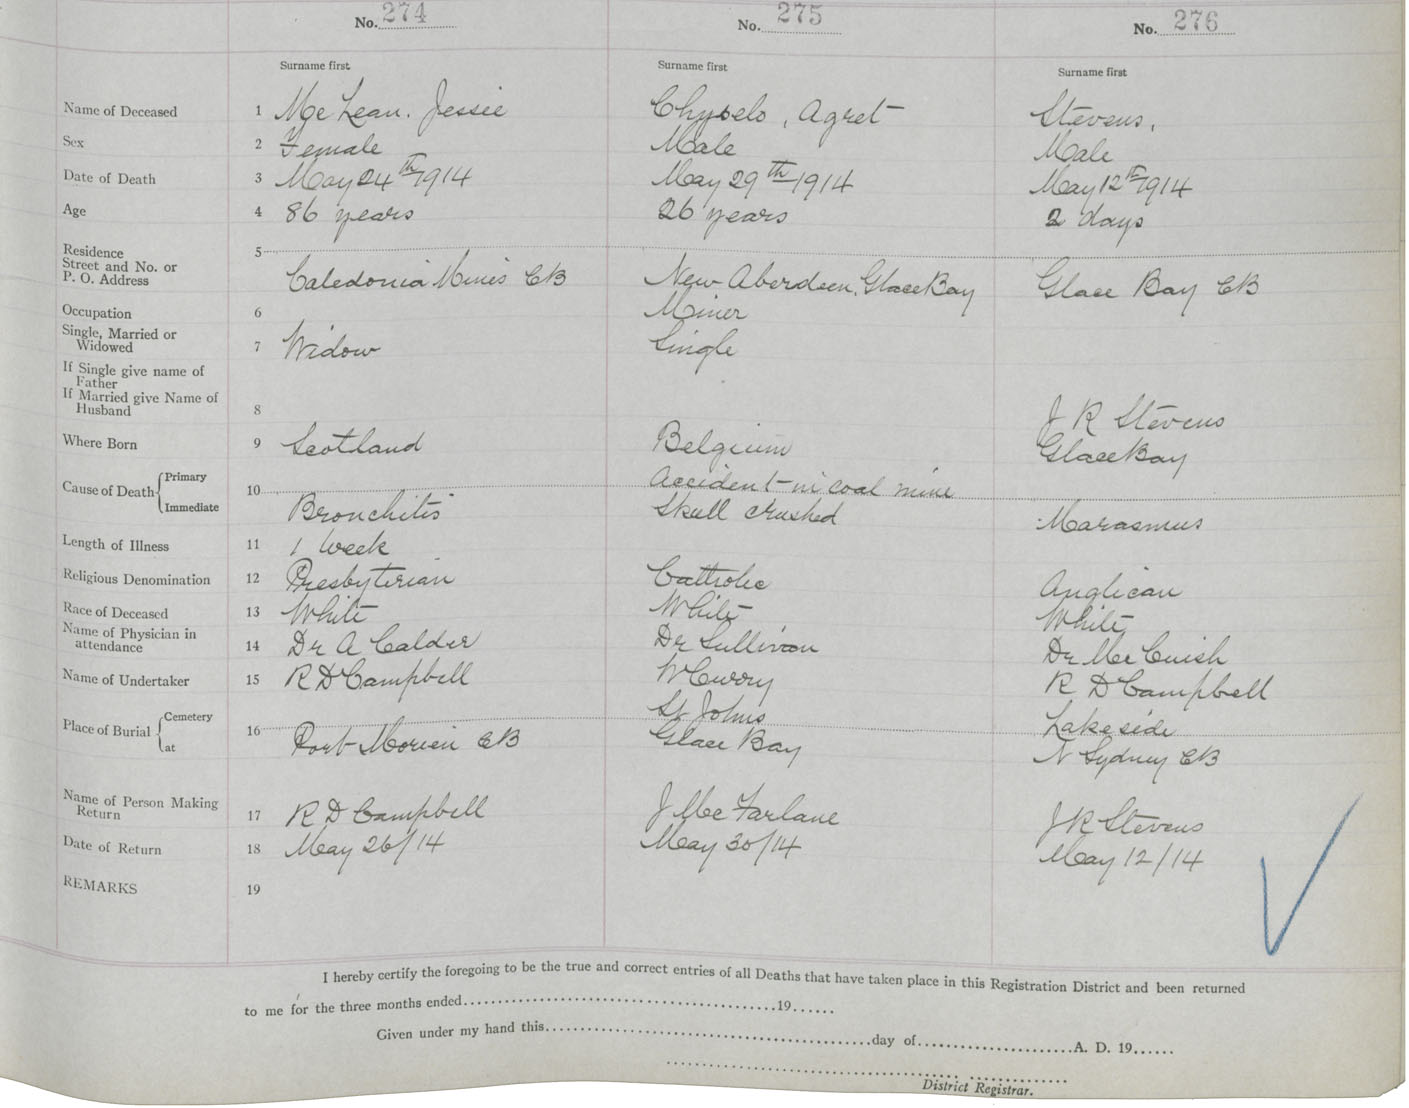 No. 274 No. 275 No. 276
Surname first Surname first Surname first
Name of Deceased 1 McLean. Jessie Chyselo, Agret Stevens,
Sex 2 Female Male Male
Date of Death 3 May 24th 1914 May 29th 1914 May 12th 1914
Age 4 86 years 26 years 2 days
Residence 5
Street and No. or
P. O. Address Caledonia Mines CB New Aberdeen, Glace Bay Glace Bay CB
Occupation 6 Miner
Single, Married or
Widowed 7 Widow Single
If Single give name of
Father
If Married give Name of
Husband 8 J R Stevens
Where Born 9 Scotland Belgium Glace Bay
Cause of Death Primary 10 Accident in coal mine
Immediate Bronchitis Skull crushed Marasmus
Length of Illness 11 1 week
Religious Denomination 12 Presbyterian Catholic Anglican
Race of Deceased 13 White White White
Name of Physician in
attendance 14 Dr A Calder Dr Sullivan Dr McCuish
Name of Undertaker 15 R D Campbell W Curry R D Campbell
Place of Burial Cemetery 16 St Johns Lakeside
at Port Morien CB Glace Bay N Sydney CB
Name of Person Making
Return 17 R D Campbell J McFarlane J R Stevens
Date of Return 18 May 26/14 May 30/14 May 12/14
REMARKS 19
I hereby certify the foregoing to be the true and correct entries of all Deaths that have taken place in this Registration District and been returned
to me for the three months ended 19
Given under my hand this day of A. D. 19
District Registrar.